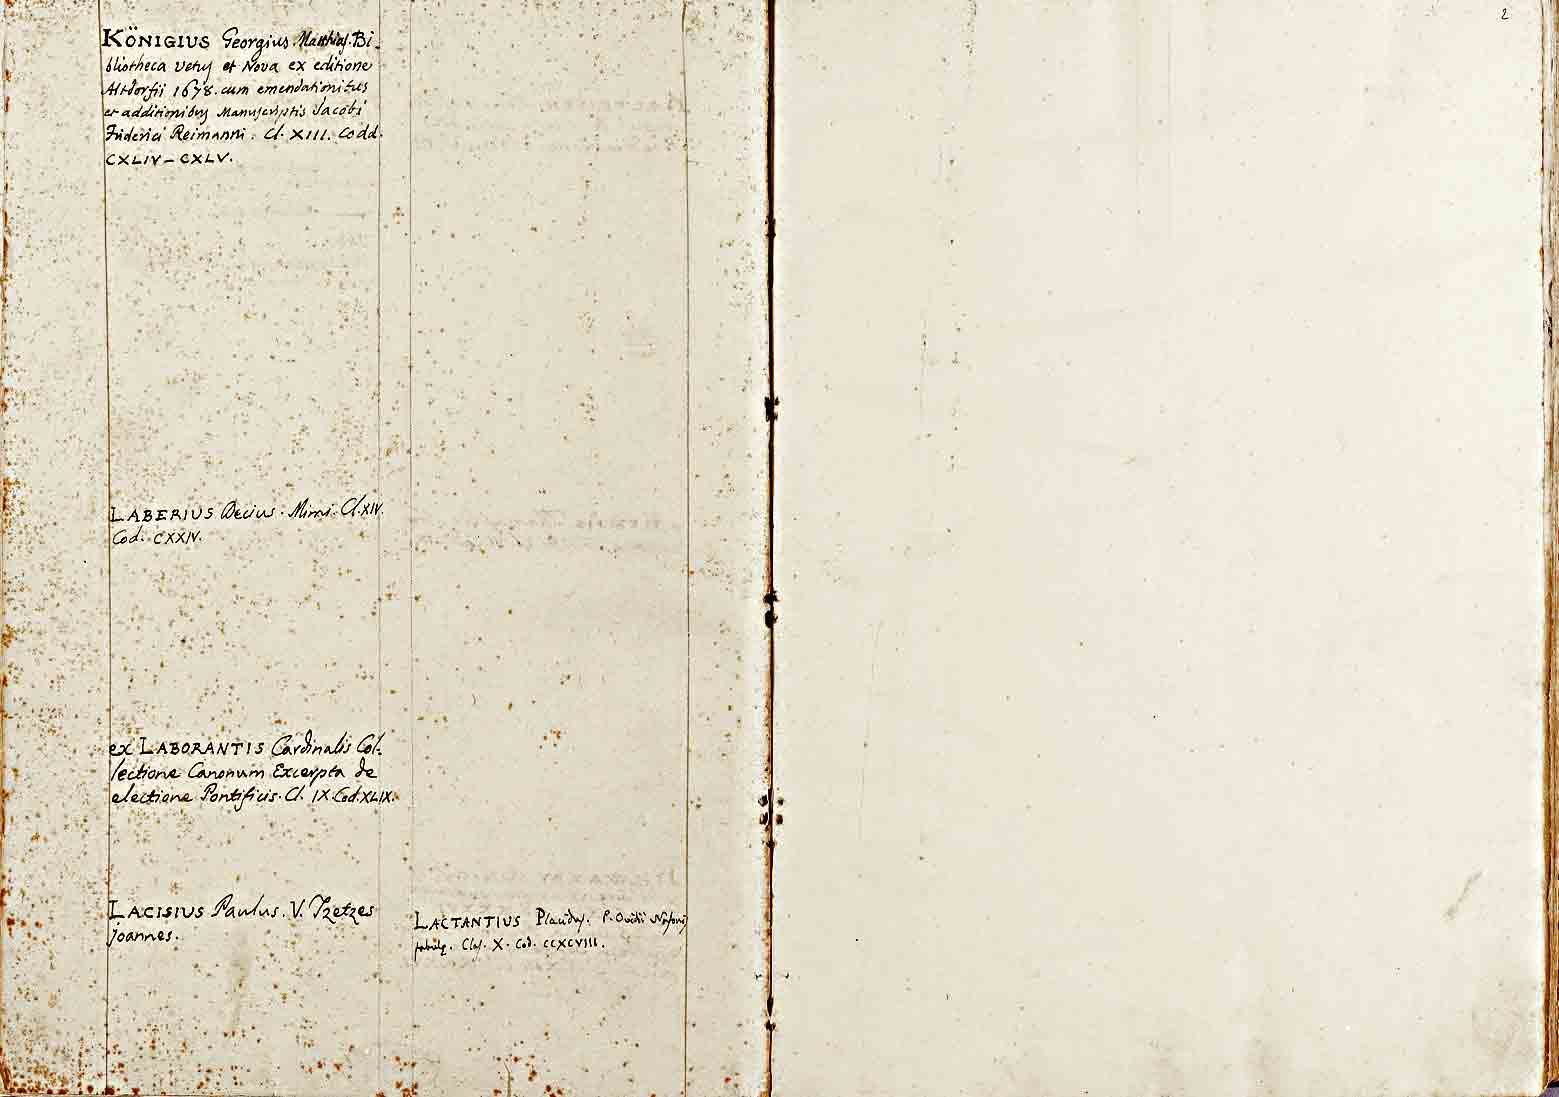 KÖNIGIUS Georgius Matthias. Bi-
bliotheca Vetus et Nova ex editione
Altdorfii 1678. cum emendationibus
et additionibus Manuscriptis Jacobi
Friderici Reimanni. Cl. XIII. Codd.
CXLIV–CXLV.
LABERIUS Decius. Mimi. Cl. XIV.
Cod. CXXIV.
ex LABORANTIS Cardinalis Col-
lectione Canonum Excerpta de
electione Pontificis. Cl. IX. Cod. XLIX.
LACISIUS Paulus. V. Tzetzes
Joannes.
LACTANTIUS Placidus. P. Ovidii Nasonis
fabulę. Clas. X. Cod. CCXCVIII.
2